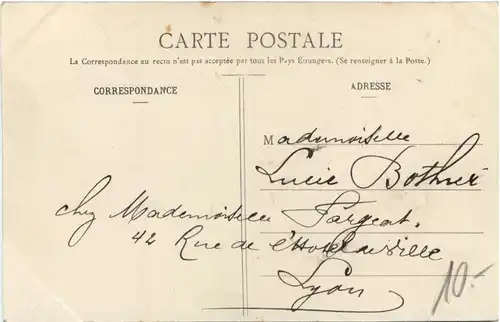 CARTE POSTALE
La Correspondance au recto n'est pas acceptée par tous les Pays Etrangers. (Se renseigner à la Poste.)
CORRESPONDANCE
ADRESSE
Mademoiselle
Lucie
chez Mademoiselle Fargeat.
42 Rue de l'Hotel de Ville
Lyon
10.-